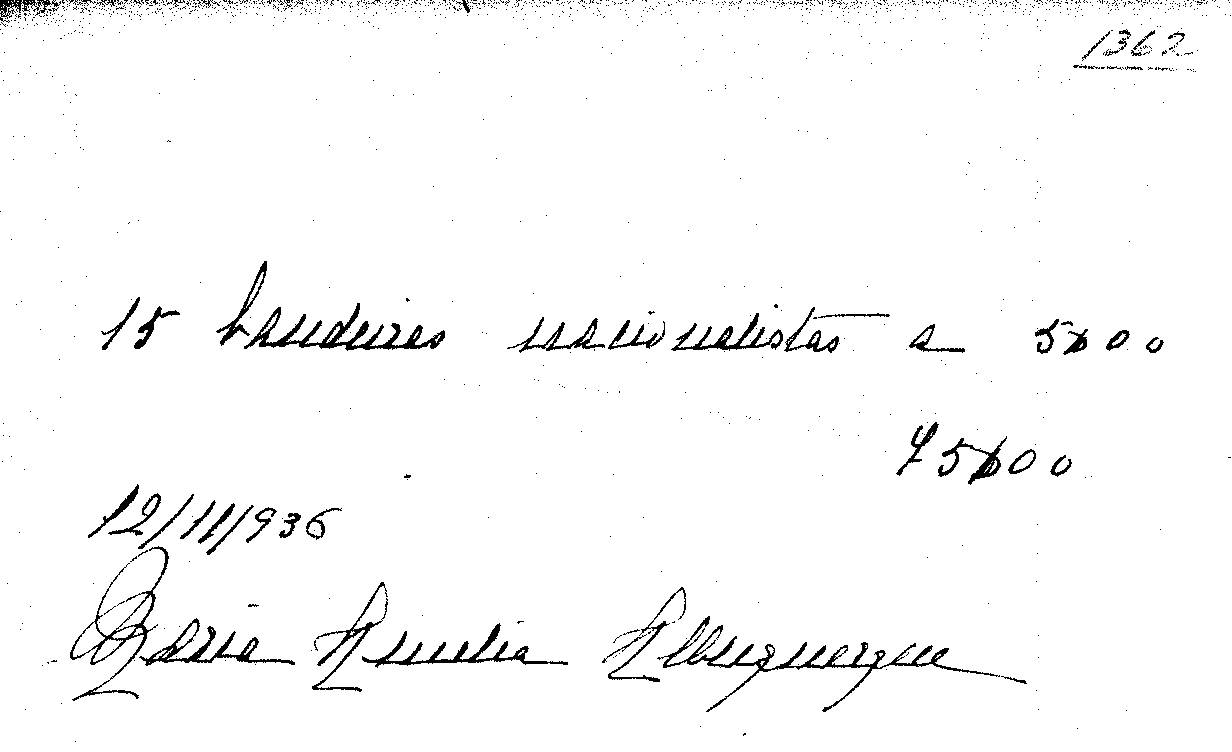 1362
15 bandeiras nacionalistas a 5$00
75$00
12/11/936
Maria Amelia Albuquerque